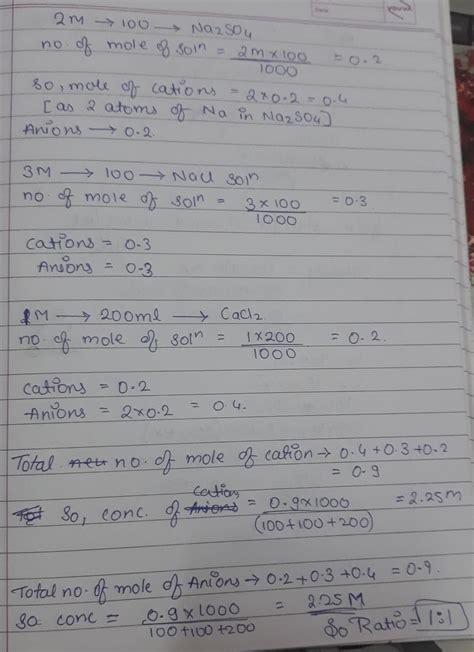 2M → 100 → Na2SO4
no. of mole of solⁿ = 2m×100/1000 = 0.2
so, mole of cations = 2×0.2 = 0.4
[as 2 atoms of Na in Na2SO4]
Anions → 0.2
3M → 100 → NaCl solⁿ
no. of mole of solⁿ = 3×100/1000 = 0.3
Cations = 0.3
Anions = 0.3
1M → 200ml → CaCl2
no. of mole of solⁿ = 1×200/1000 = 0.2.
Cations = 0.2
Anions = 2×0.2 = 0.4.
Total no. of mole of cation → 0.4+0.3+0.2
= 0.9
So, conc. of cations = 0.9×1000/(100+100+200) = 2.25M
Total no. of mole of Anions → 0.2+0.3+0.4 = 0.9.
So conc = 0.9×1000/100+100+200 = 2.25 M
So Ratio = 1:1